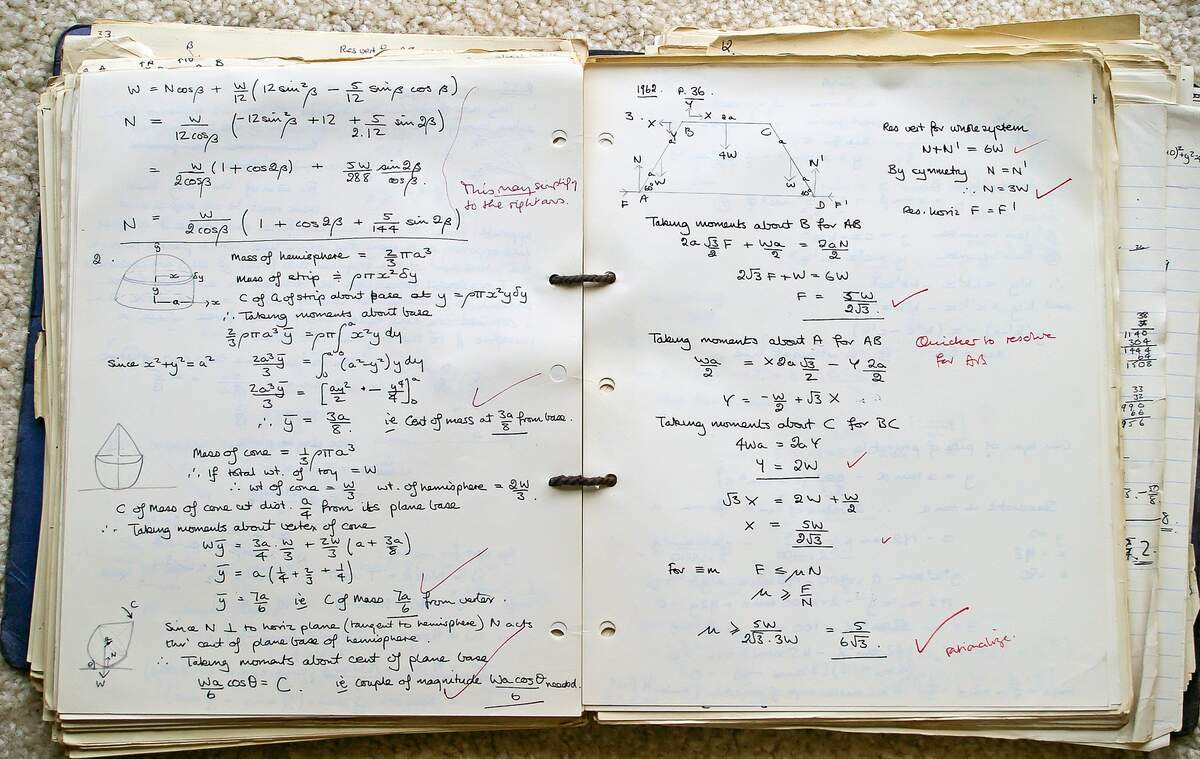 33
β
Res vert
W = Ncosβ + W/12 (12sin²β − 5/12 sinβ cosβ)
N = W/12cosβ (−12sin²β + 12 + 5/2.12 sin2β)
= W/2cosβ (1 + cos2β) + 5W/288 sin2β/cosβ.
This may simplify
to the right ans.
N = W/2cosβ (1 + cos2β + 5/144 sin2β)
2.
x δy
y
a → x
Mass of hemisphere = 2/3 πa³
Mass of strip ≑ ρπx²δy
C of G of strip about base at y = ρπx²yδy
∴ Taking moments about base
2/3 ρπa³ȳ = ρπ∫₀ᵃ x²y dy
since x²+y² = a² 2a³ȳ/3 = ∫₀ᵃ (a²−y²)y dy
2a³ȳ/3 = [ay²/2 − y⁴/4]₀ᵃ
∴ ȳ = 3a/8. ie Cent of mass at 3a/8 from base.
Mass of cone = 1/3 ρπa³
∴ If total wt. of toy = W
∴ wt of cone = W/3 wt. of hemisphere = 2W/3.
C of Mass of cone at dist. a/4 from its plane base
∴ Taking moments about vertex of cone
Wȳ = 3a/4 . W/3 + 2W/3 (a + 3a/8)
ȳ = a(1/4 + 2/3 + 1/4)
ȳ = 7a/6 ie C of Mass 7a/6 from vertex.
C
N
θ
W
Since N ⊥ to horiz plane (tangent to hemisphere) N acts
thro' cent of plane base of hemisphere.
∴ Taking moments about cent of plane base
Wa/6 cosθ = C. ie couple of magnitude Wa cosθ/6 needed.
2.
1962 P. 36.
3.
Y
X X 2a
B C
a a
4W
N N'
a a
W W
60° 60°
F A D F'
Res vert for whole system
N+N' = 6W
By symmetry N = N'
∴ N = 3W
Res. horiz F = F'
Taking moments about B for AB
2a √3/2 F + Wa/2 = 2aN/2
2√3 F + W = 6W
F = 5W/2√3.
Taking moments about A for AB
Quicker to resolve
for AB
Wa/2 = X 2a √3/2 − Y 2a/2
Y = −W/2 + √3 X
Taking moments about C for BC
4Wa = 2aY
Y = 2W
√3 X = 2W + W/2
X = 5W/2√3
for ≡m F ≤ μN
μ ≥ F/N
μ ≥ 5W/2√3.3W = 5/6√3.
rationalize.
38
38
1140
304
1444
64
1508
33
32
990
66
956
8.
2.